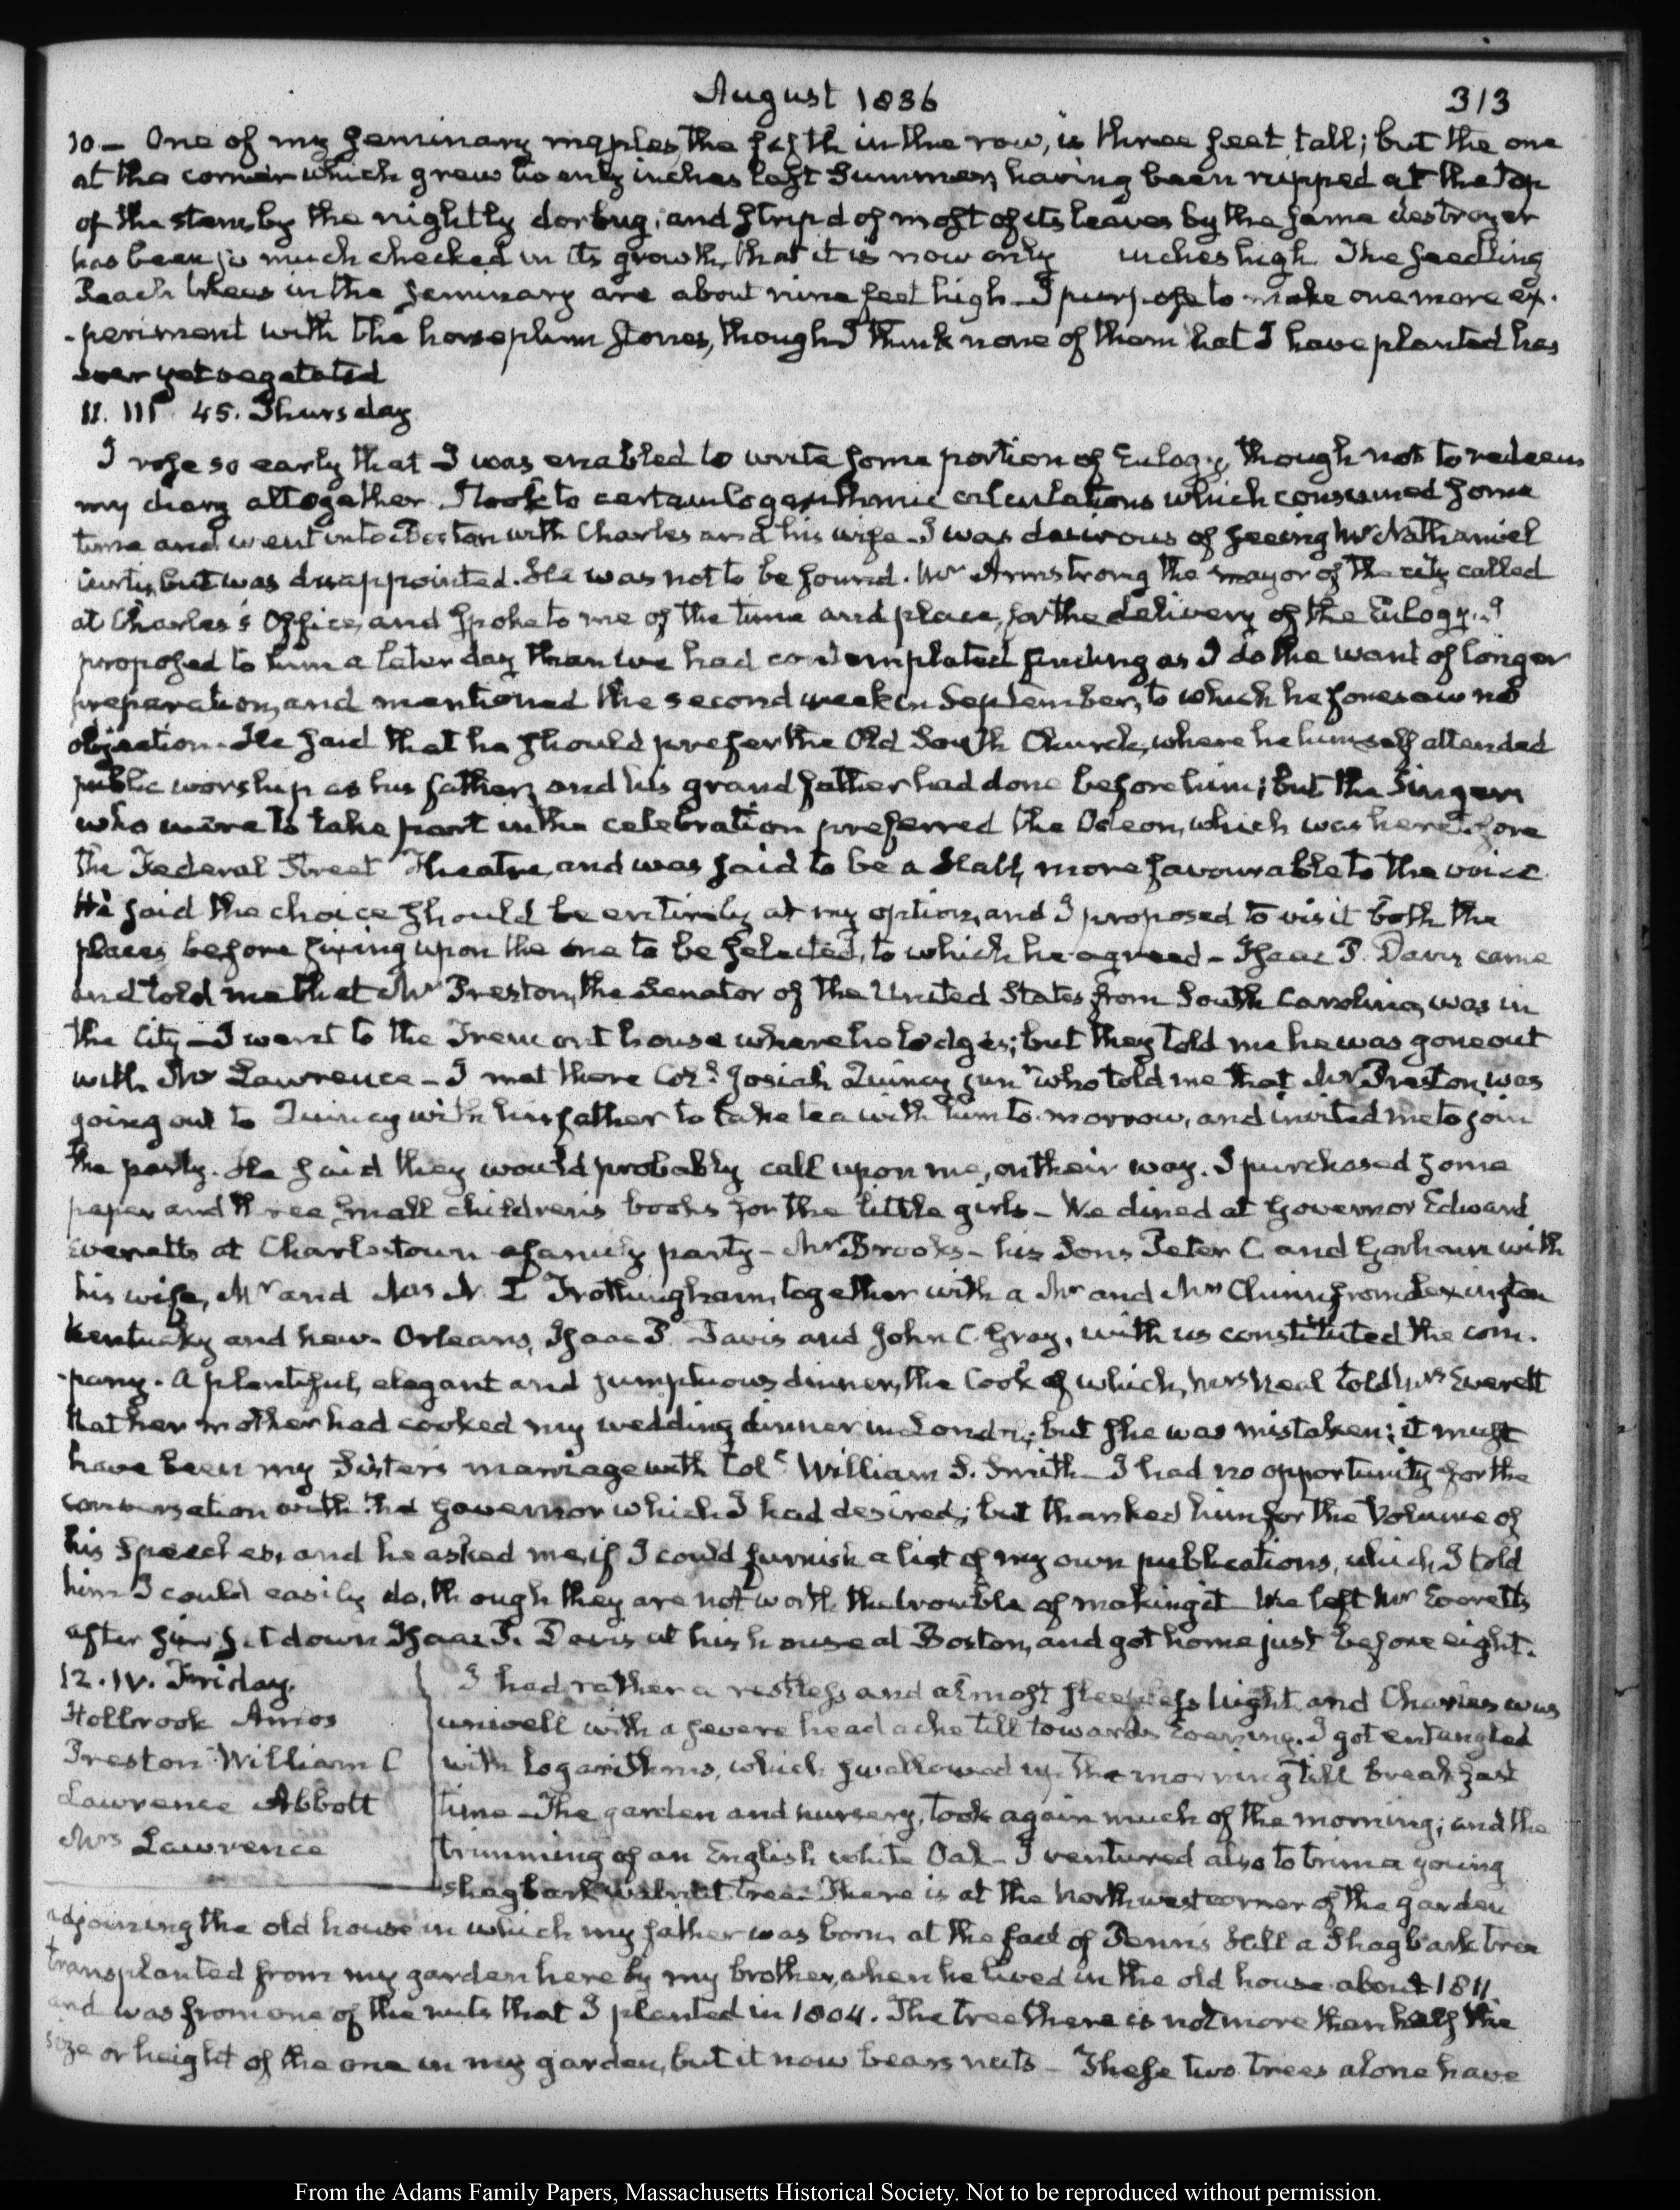 August 1836 313
10 — One of my seminary maples, the fifth in the row, is three feet tall; but the one
at the corner which grew twenty inches last Summer, having been nipped at the top
of the stem, by the nightly dorbug, and strip'd of most of its leaves by the same destroyer
has been so much checked in its growth, that it is now only inches high. The seedling
Peach trees in the seminary are about nine feet high — I purpose to make one more ex-
-periment with the horseplum stones, though I think none of them that I have planted has
ever yet vegetated
11. III. 45. Thursday
I rose so early that I was enabled to write some portion of Eulogy, though not to redeem
my diary altogether. I took to certain logarithmic calculations which consumed some
time and went into Boston with Charles and his wife — I was desirous of seeing Mr Nathaniel
Curtis, but was disappointed. He was not to be found. Mr Armstrong the mayor of the city called
at Charles's Office, and spoke to me of the time and place, for the delivery of the Eulogy. I
proposed to him a later day than we had contemplated finding as I do the want of longer
preparation, and mentioned the second week in September, to which he foresaw no
objection. He said that he should prefer the Old South Church, where he himself attended
public worship as his father, and his grandfather had done before him; but the Singers
who were to take part in the celebration preferred the Odeon, which was heretofore
the Federal Street Theatre, and was said to be a Hall, more favourable to the voice
He said the choice should be entirely at my option, and I proposed to visit both the
places before fixing upon the one to be selected, to which he agreed — Isaac P. Davis came
and told me that Mr Preston, the Senator of the United States from South Carolina, was in
the City — I went to the Tremont house where he lodges; but they told me he was gone out
with Mr Lawrence — I met there Coll Josiah Quincy junr who told me that Mr Preston, was
going out to Quincy with his father to take tea with him to-morrow, and invited me to join
the party. He said they would probably call upon me, on their way. I purchased some
paper and three small children's books for the little girls — We dined at Governor Edward
Everett's at Charlestown a family party — Mr Brooks — his Sons Peter C. and Gorham with
his wife, Mr and Mrs N. L Frothingham, together with a Mr and Mrs Chinn from Lexington
Kentucky and New-Orleans, Isaac P. Davis and John C. Gray, with us constituted the com-
-pany. A plentiful, elegant and sumptuous dinner, the Cook of which, Mrs Neal told Mrs Everett
that her mother had cooked my wedding dinner in London; but she was mistaken; it must
have been my Sister's marriage with Coll William S. Smith — I had no opportunity for the
conversation with the Governor which I had desired; but thanked him for the Volume of
his Speeches, and he asked me, if I could furnish a list of my own publications, which I told
him I could easily do, though they are not worth the trouble of making it. We left Mr Everett's
after set down Isaac P. Davis at his house at Boston, and got home just before eight.
12. IV. Friday.
Holbrook Amos
Preston William C
Lawrence Abbott
Mrs Lawrence
I had rather a restless and almost sleepless Night and Charles was
unwell with a severe head ache till towards Evening. I got entangled
with logarithms, which swallowed up the morning till breakfast
time — The garden and nursery, took again much of the morning; and the
trimming of an English white Oak — I ventured also to trim a young
shagbark walnut tree. There is at the Northwest corner of the garden
adjoining the old house in which my father was born, at the foot of Penn's Hill a Shagbark tree
transplanted from my garden here by my brother, when he lived in the old house about 1811.
and was from one of the nuts that I planted in 1804. The tree there is not more than half the
size or height of the one in my garden, but it now bears nuts — These two trees alone have
From the Adams Family Papers, Massachusetts Historical Society. Not to be reproduced without permission.